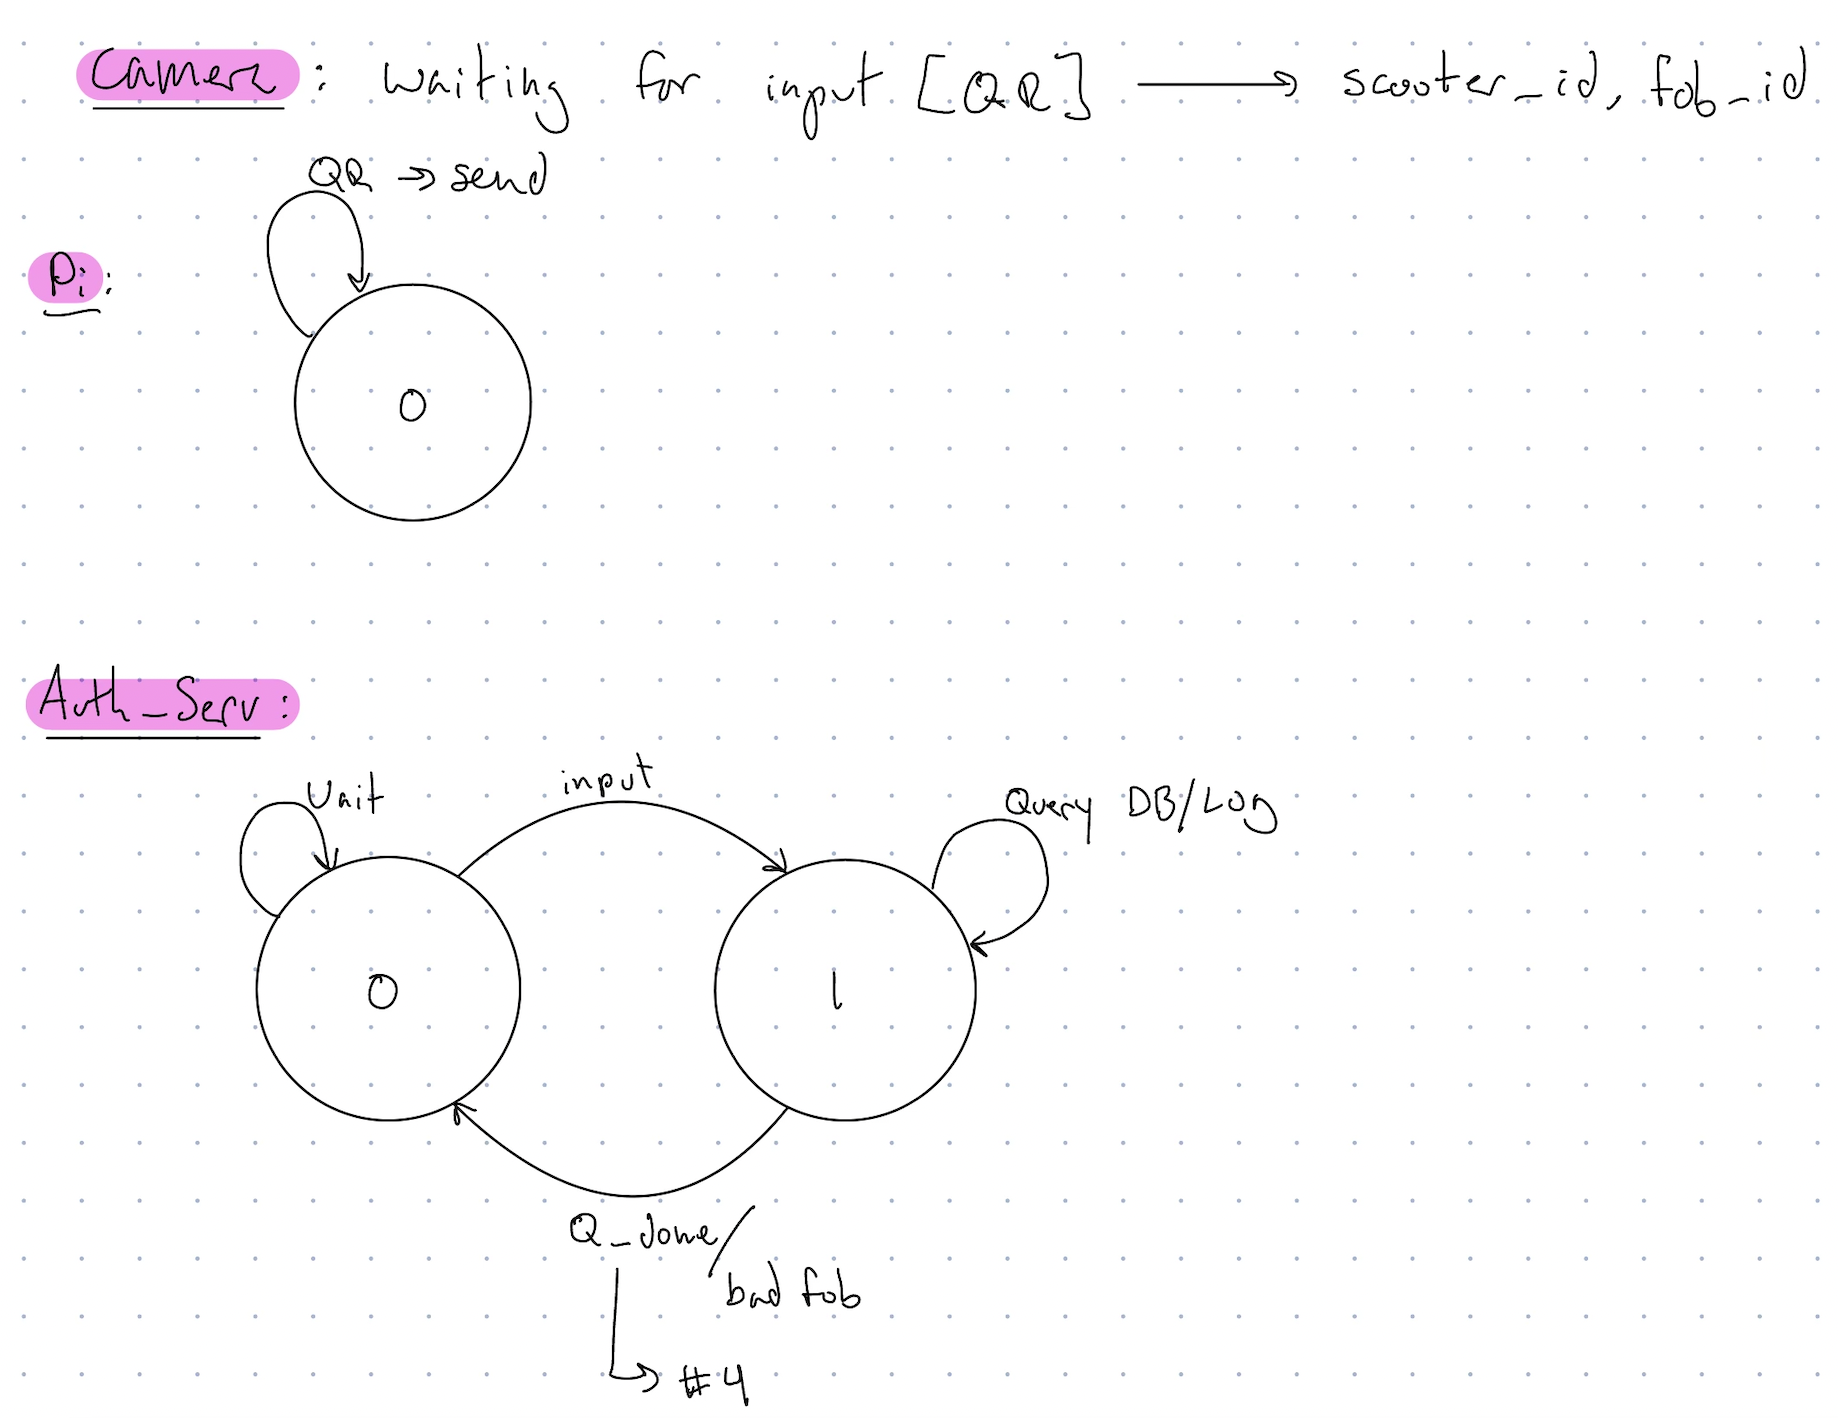 Camera: waiting for input [QR] → scooter_id, fob_id
QR → send
Pi:
0
Auth_Serv:
Wait
input
Query DB/Log
0
1
Q_done/
bad fob
↳ #4